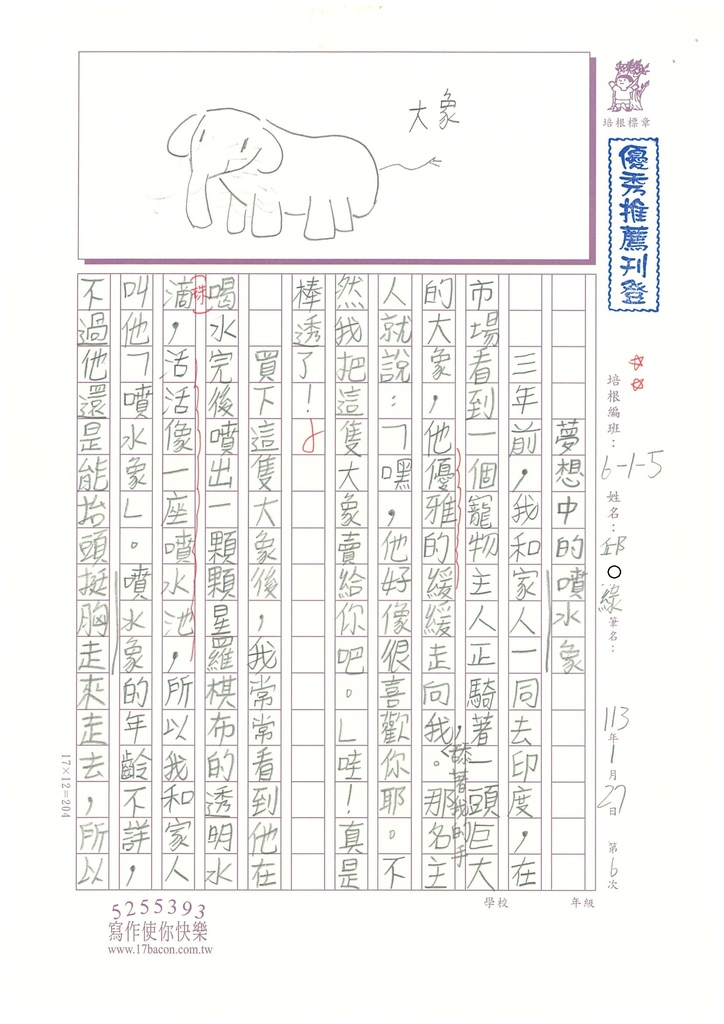 大象
培根標章
優秀推薦刊登
培根編班：6-1-5
姓名：邱○綠
筆名：
113年1月27日
第6次
夢想中的噴水象
三年前，我和家人一同去印度，在
市場看到一個寵物主人正騎著一頭巨大
的大象，他優雅的緩緩走向我，舔著我的手。那名主
人就說：「嘿，他好像很喜歡你耶。不
然我把這隻大象賣給你吧。」哇！真是
棒透了！
買下這隻大象後，我常常看到他在
喝水完後噴出一顆顆星羅棋布的透明水
珠
滴，活活像一座噴水池，所以我和家人
叫他「噴水象」。噴水象的年齡不詳，
不過他還是能抬頭挺胸走來走去，所以
17×12=204
學校
年級
5255393
寫作使你快樂
www.17bacon.com.tw